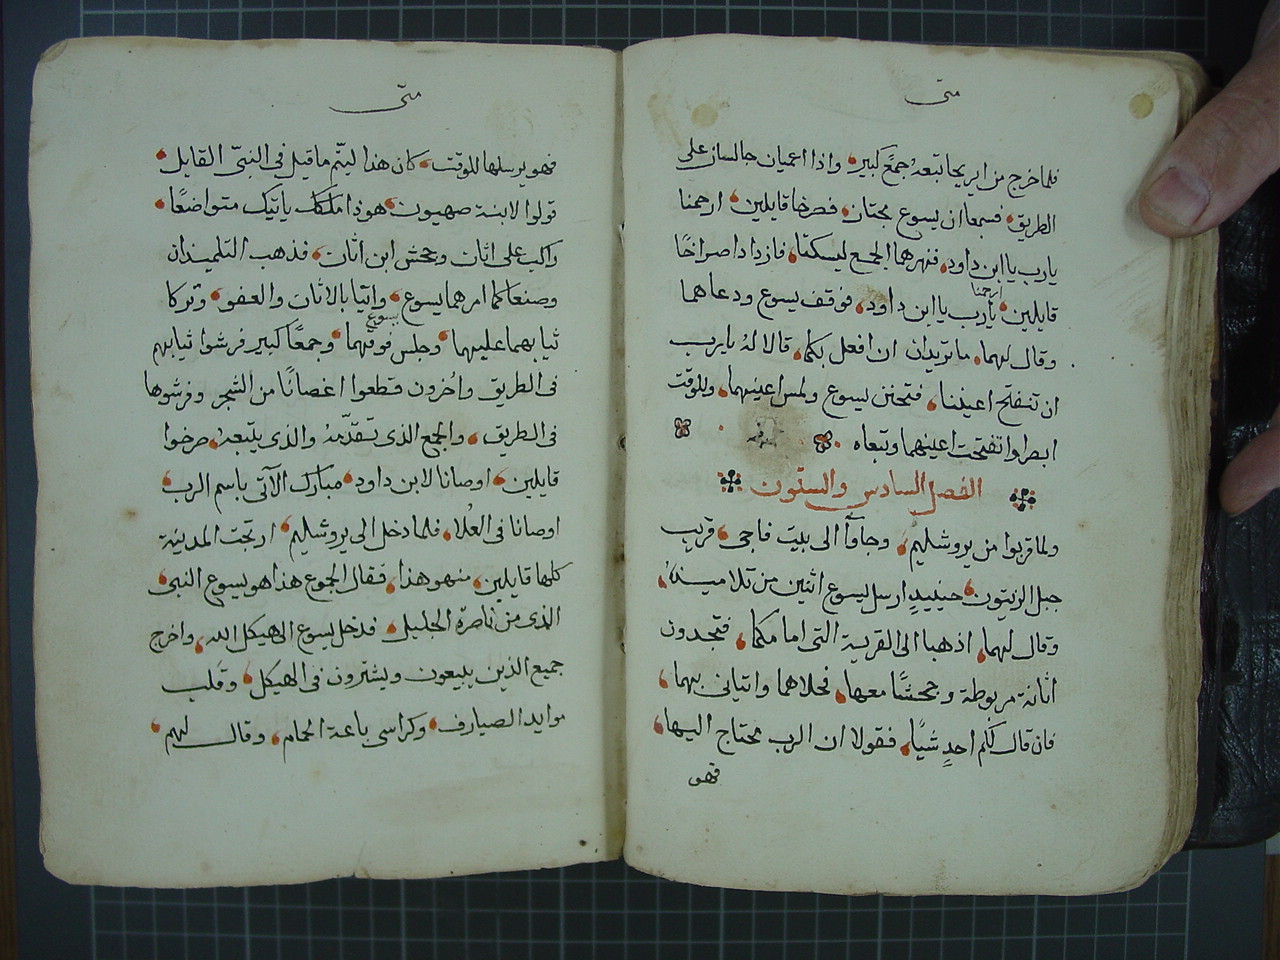 متى
فلما خرج من اريحا تبعهُ جمعٌ كبير، واذا اعميان جالسان على
الطريق، فسمعا ان يسوع مجتازٌ، فصرخا قايلين، ارحمنا
يارب يا ابن داود، فنهرهما الجمع ليسكتا، فازدادا صراخًا
ارحمنا
قايلين، يارب يا ابن داود، فوقف يسوع ودعاهما
وقال لهما، ما تريدان ان افعل بكما، قالا لهُ يارب
ان تنفتح اعيننا، فتحنن يسوع ولمس اعينهما، وللوقت
ابصروا تفتحت اعينهما وتبعاه
الفصل السادس والستون
ولما قربوا من يروشليم، وجاوآ الى بيت فاجى، قريب
جبل الزيتون، حينيدٍ ارسل يسوع اثنين من تلاميذهُ،
وقال لهما، اذهبا الى القرية التى امامكما، فتجدون
اتانة مربوطة وجحشًا معها، فحلاهما واتيانى بهما،
فان قال لكم احدٍ شيًا، فقولا ان الرب محتاج اليها،
فهو
متى
فهو يرسلها للوقت، كان هذا ليتّم ما قيل فى النبىّ القايل،
قولوا لابنة صهيون، هوذا ملكك ياتيك متواضعًا،
راكب على اتان وجحش ابن اتان، فذهب التلميذان
وصنعا كما امرهما يسوع، واتيا بالاتان والعفو، وتركا
يسوع
ثيابهما عليهما، وجلس فوقهما، وجمعًا كبير فرشوا ثيابهم
فى الطريق واخرون قطعوا اغصانًا من الشجر وفرشوها
فى الطريق، والجمع الذى تقدّمهُ والذى يتبعهُ، صرخوا
قايلين، اوصانا لابن داود، مبارك الآتى باسم الرب،
اوصانا فى العُلا، فلما دخل الى يروشليم، ارتجت المدينة
كلها قايلين، من هو هذا، فقال الجموع هذا هو يسوع النبى،
الذى من ناصرة الجليل، فدخل يسوع الى هيكل الله، واخرج
جميع الذين يبيعون ويشترون فى الهيكل، وقلب
موايد الصيارف، وكراسى باعة الحمام، وقال لهم،